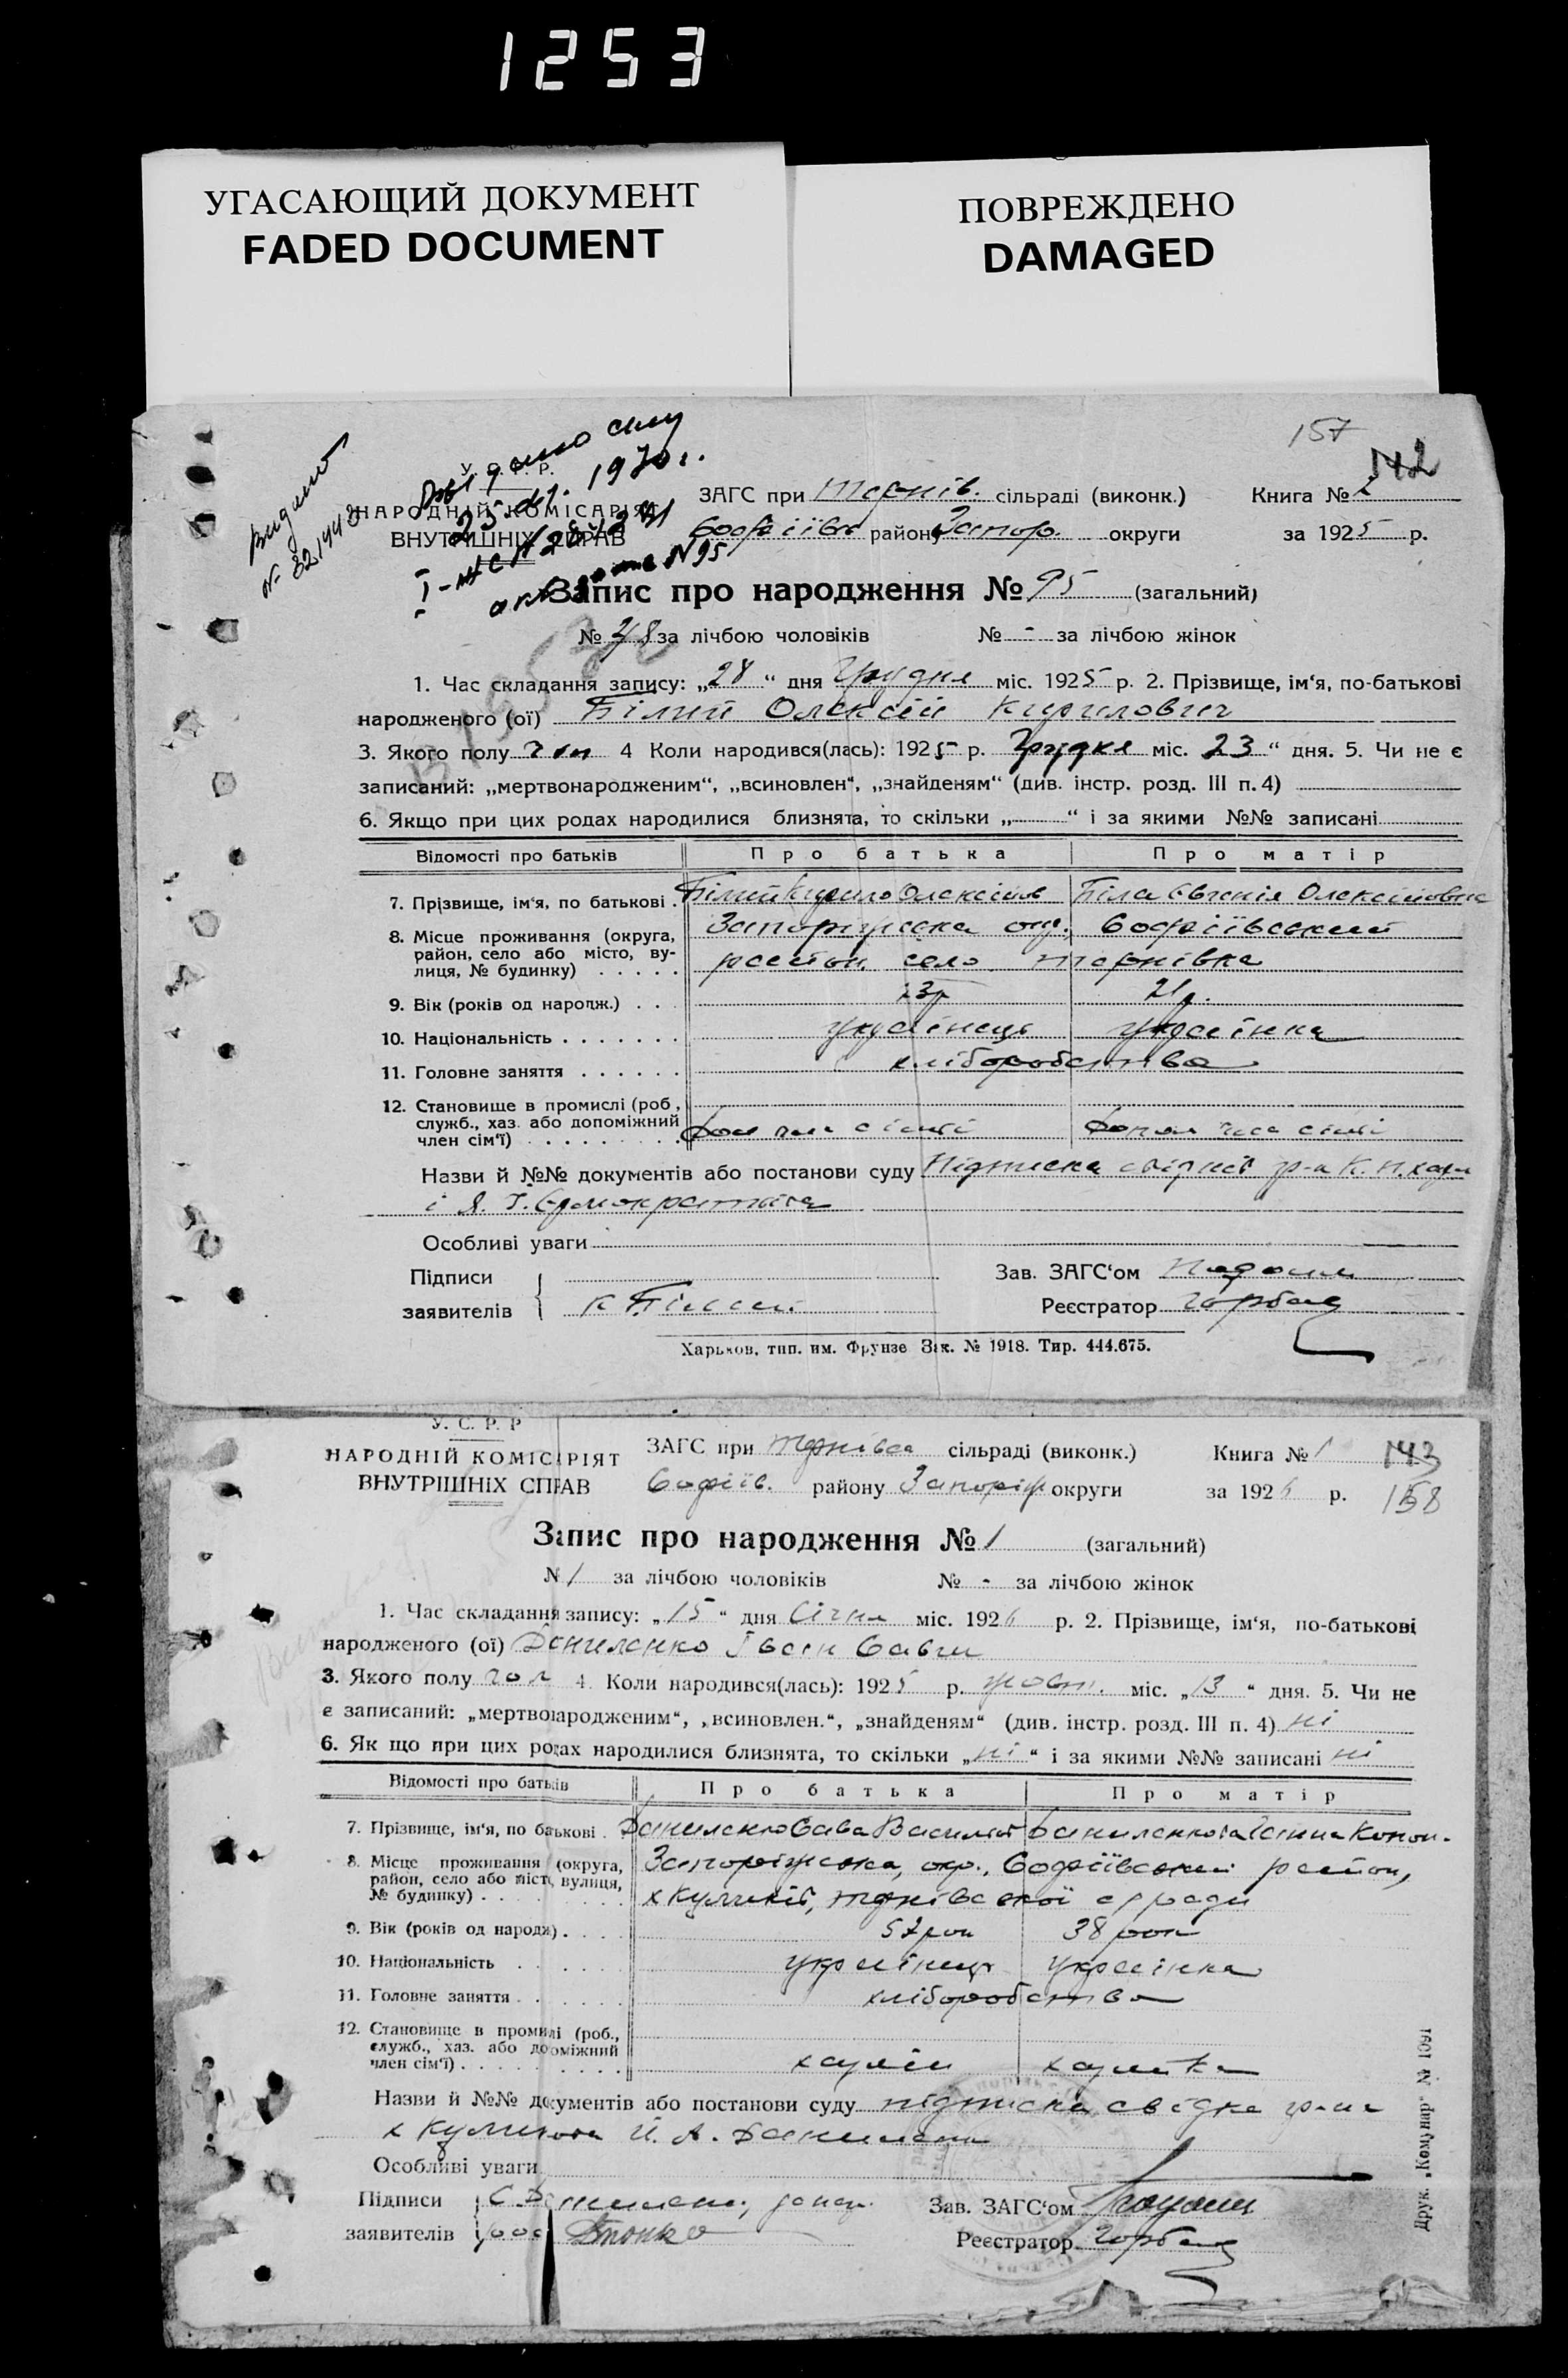 1253
УГАСАЮЩИЙ ДОКУМЕНТ
FADED DOCUMENT
ПОВРЕЖДЕНО
DAMAGED
157
142
Видано
У. С. Р. Р.
1970 г.
НАРОДНІЙ КОМІСАРІЯТ
ВНУТРІШНІХ СПРАВ
ЗАГС при Тернів. сільраді (виконк.) Книга № 2
Софіївс району Запор. округи за 1925 р.
Запис про народження № 95 (загальний)
№ 48 за лічбою чоловіків № - за лічбою жінок
1. Час складання запису: „28“ дня Грудня міс. 1925 р. 2. Прізвище, ім‘я, по-батькові
народженого (ої) Білий Олексій Кирилович
3. Якого полу чол 4 Коли народився(лась): 1925 р. Грудня міс. 23“ дня. 5. Чи не є
записаний: „мертвонародженим“, „всиновлен“, „знайденям“ (див. інстр. розд. III п. 4)
6. Якщо при цих родах народилися близнята, то скільки „ “ і за якими №№ записані
Відомості про батьків Про батька Про матір
7. Прізвище, ім‘я, по батькові . Білий Кирило Олексіїв Біла Євгенія Олексіївна
8. Місце проживання (округа, Запоріжська окр., Софіївський
район, село або місто, ву-
лиця, № будинку) . . . . . район село Тернівка
9. Вік (років од народж.) . . . 23р 21р.
10. Національність . . . . . . . українець українка
11. Головне заняття . . . . . . хліборобство
12. Становище в промислі (роб ,
служб., хаз. або допоміжний
член сім‘ї) . . . . . . . . .
Назви й №№ документів або постанови суду Підписка свідків гр-н К.
Особливі уваги
Підписи Зав. ЗАГС‘ом
заявителів К Білий. Реєстратор Горбань
Харьков, тип. им. Фрунзе Зак. № 1918. Тир. 444.675.
У. С. Р. Р
НАРОДНІЙ КОМІСАРІЯТ
ВНУТРІШНІХ СПРАВ
ЗАГС при Тернівса сільраді (виконк.) Книга № 1 143
Софіїв. району Запоріж округи за 1926 р. 158
Запис про народження № 1 (загальний)
№ 1 за лічбою чоловіків № - за лічбою жінок
1. Час складання запису: „15“ дня Січня міс. 1926 р. 2. Прізвище, ім‘я, по-батькові
народженого (ої) Даниленко Іван Савич
3. Якого полу чол 4. Коли народився(лась): 1925 р. жовт. міс. „13“ дня. 5. Чи не
є записаний: „мертвонародженим“, „всиновлен.“, „знайденям“ (див. інстр. розд. III п. 4) ні
6. Як що при цих родах народилися близнята, то скільки „ні“ і за якими №№ записані ні
Відомості про батьків Про батька Про матір
7. Прізвище, ім‘я, по батькові . Даниленко Сава Василів Даниленкова Ганна Конон.
8. Місце проживання (округа, Запоріжська, окр., Софіївський район,
район, село або місто, вулиця,
№ будинку) . . . . . х Куликів, Тернівської с ради
9. Вік (років од народж) . . . . 38 рок
10. Національність . . . . . . українець українка
11. Головне заняття . . . . . . хліборобство
12. Становище в промислі (роб.,
служб., хаз. або допоміжний
член сім‘ї) . . . . . . . . . хазяїн хазяйка
Назви й №№ документів або постанови суду підписка свідка гр-на
Особливі уваги
Підписи С. Зав. ЗАГС‘ом
заявителів Реєстратор Горбань
Друк. „Комунар“ № 1091